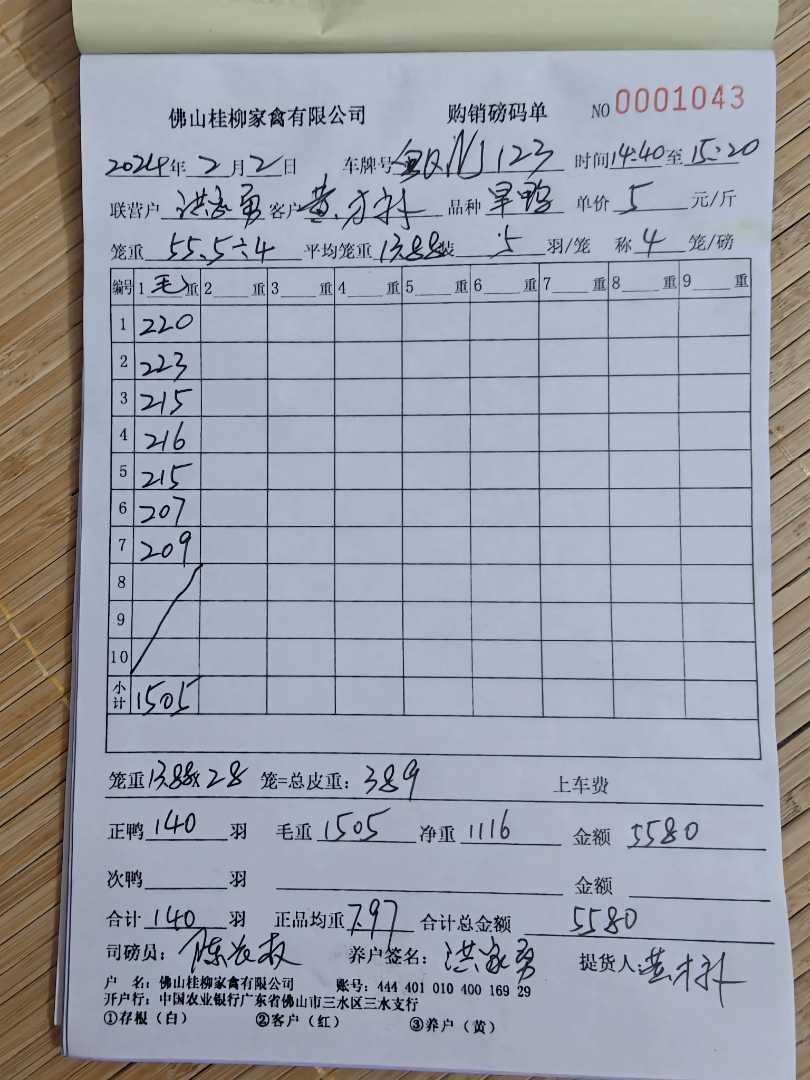 佛山桂柳家禽有限公司 购销磅码单 NO 0001043
2024年2月2日 车牌号 123 时间14:40至15:20
联营户 洪家勇 客户 黄才补 品种 旱鸭 单价 5 元/斤
笼重 55.5÷4 平均笼重 13.88 装 5 羽/笼 称 4 笼/磅
编号 1 毛 重 2 重 3 重 4 重 5 重 6 重 7 重 8 重 9 重
1 220
2 223
3 215
4 216
5 215
6 207
7 209
8
9
10
小计 1505
笼重13.88× 28 笼=总皮重: 389 上车费
正鸭 140 羽 毛重 1505 净重 1116 金额 5580
次鸭 羽 金额
合计 140 羽 正品均重 7.97 合计总金额 5580
司磅员: 养户签名: 洪家勇 提货人: 黄才补
户 名: 佛山桂柳家禽有限公司 账号: 444 401 010 400 169 29
开户行: 中国农业银行广东省佛山市三水区三水支行
①存根(白) ②客户(红) ③养户(黄)